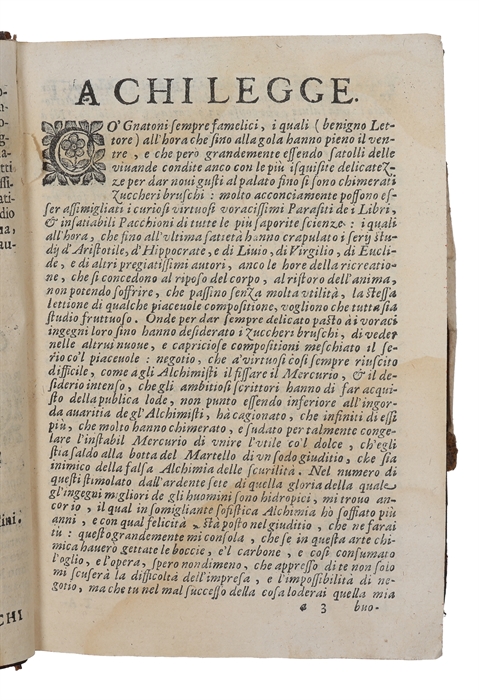 A CHI LEGGE.
CO' Gnatoni sempre famelici, i quali ( benigno Let-
tore ) all'hora che sino alla gola hanno pieno il ven-
tre, e che però grandemente essendo satolli delle
viuande condite anco con le più isquisite delicatez-
ze per dar noui gusti al palato sino si sono chimerati
i zuccheri bruschi : molto acconciamente possono es-
ser assimigliati i curiosi virtuosi voracissimi Parasiti de i Libri,
& insatiabili Pacchioni di tutte le più saporite scienze : i quali
all'hora, che sino all'vltima satietà hanno crapulato i serij stu-
dij d'Aristotile, d'Hippocrate, e di Liuio, di Virgilio, di Eucli-
de, e di altri pregiatissimi autori, anco le hore della ricreatio-
ne, che si concedono al riposo del corpo, al ristoro dell'anima,
non potendo soffrire, che passino senza molta vtilità, la stessa
lettione di qualche piaceuole compositione, vogliono che tutta sia
studio fruttuoso. Onde per dar sempre delicato pasto à i voraci
ingegni loro sino hanno desiderato i zuccheri bruschi, di veder
nelle altrui nuoue, e capriciose compositioni meschiato il se-
rio co'l piaceuole : negotio, che a'virtuosi così sempre riuscito
difficile, come a gli Alchimisti il fissare il Mercurio, & il de-
siderio intenso, che gli ambitiosi scrittori hanno di far acqui-
sto della publica lode, non punto essendo inferiore all'ingor-
da auaritia de gl'Alchimisti, hà cagionato, che infiniti di essi
più, che molto hanno chimerato, e sudato per talmente conge-
lare l'instabil Mercurio di vnire l'vtile co'l dolce, ch'egli
stia saldo alla botta del Martello di vn sodo giuditio, che sia
inimico della falsa Alchimia delle scurilità. Nel numero di
questi stimolato dall'ardente sete di quella gloria della quale
gl'ingegni migliori de gli huomini sono hidropici, mi trouo an-
cor io, il qual in somigliante sofistica Alchimia hò soffiato più
anni, e con qual felicità stà posto nel giuditio, che ne farai
tù : questo grandemente mi consola, che se in questa arte chi-
mica hauerò gettate le boccie, e'l carbone, e così consumato
l'oglio, e l'opera, spero nondimeno, che appresso di te non solo
mi scuserà la difficoltà dell'impresa, e l'impossibilità di ne-
gotio, ma che tu nel mal successo della cosa loderai quella mia
a 3 buo-